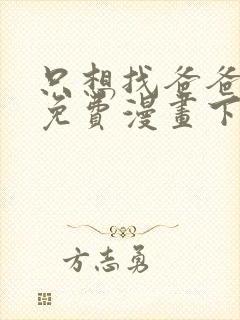 只想找爸爸
免費漫畫下
方志勇